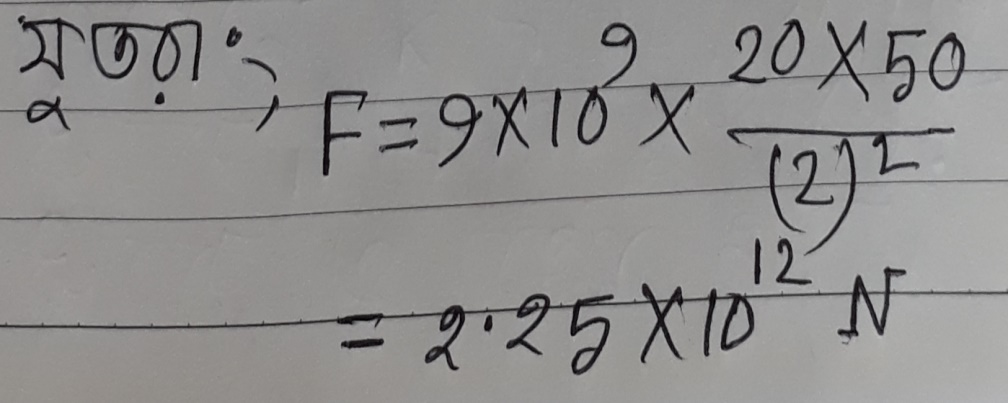 সুতরাং, F = 9×10⁹ × 20×50/(2)²
= 2.25×10¹² N